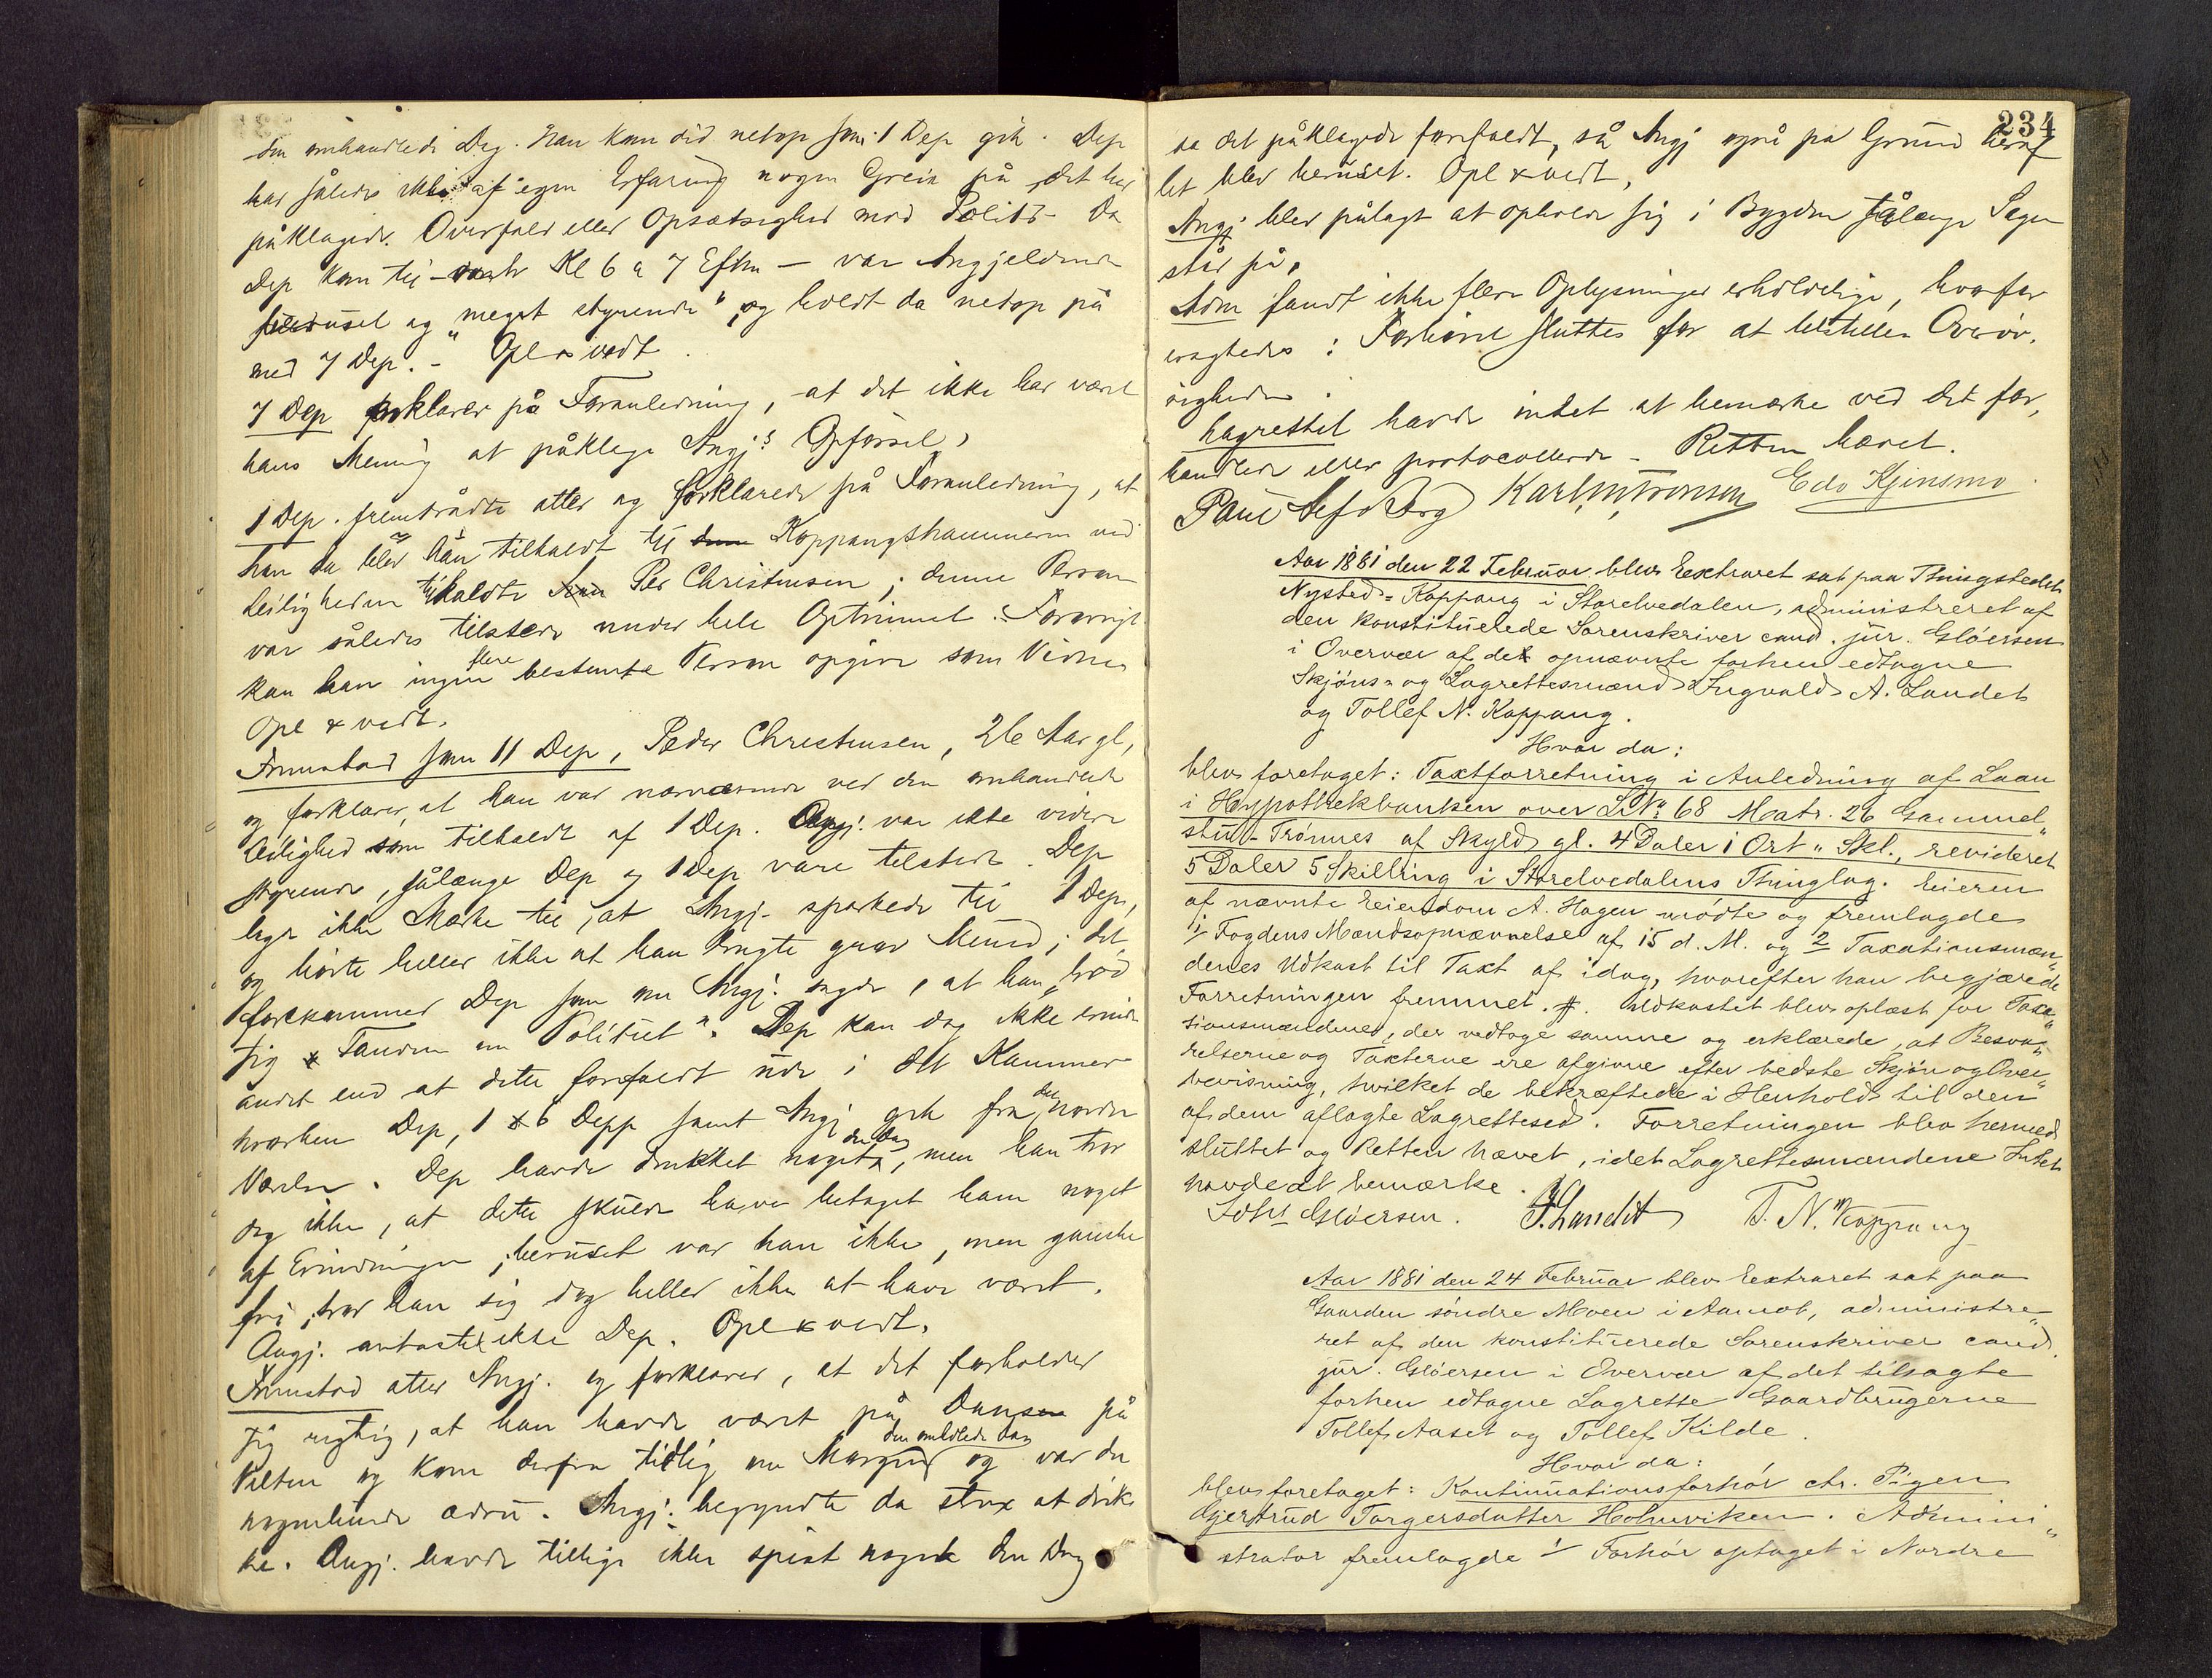 den omhandlede Dag. Han kom did netop som 1 Dep gik. Dep
har således ikke af egen Erfaring nogen Greie på det her
påklagede Overfald eller Opsætsighed mod Politi – Da
Dep kom til – Kl 6 a 7 Eftm – var Angjeldende
beruset og "meget styrende", og holdt da netop på
med 7 Dep. – Opl & vedt.
7 Dep forklarer på Foranledning, at det ikke har været
hans Mening at påklage Angj.s Opførsel,
1 Dep. fremtrådte atter og forklarede på Foranledning, at
han da blev tilkaldt til Koppangskammeren ved
Leiligheden tilkaldte Per Christensen; denne Person
var således tilstede under hele Optrinnet. Forøvrigt
kan han ingen flere bestemte Person opgive som Vidne
Opl & vedt.
Fremstod som 11 Dep, Peder Christensen, 26 Aar gl,
og forklarer, at han var nærværende ved den omhandlede
Leilighed som tilkaldt af 1 Dep. Angj. var ikke videre
styrende, sålænge Dep og 1 Dep vare tilstede. Dep
lagde ikke Mærke til, at Angj. sparkede til 1 Dep,
og hørte heller ikke at han brugte grov Mund; det
forekommer Dep som om Angj. sagde, at han "brød
sig Fanden om Politiet". Dep kan dog ikke erindre
andet end at dette forefaldt ude i det Kammer
hvorhen Dep, 1 & 6 Depp samt Angj gik fra det nordre
Værelse. Dep havde drukket noget den Dag, men han tror
dog ikke, at dette skulde have betaget ham noget
af Erindringen; beruset var han ikke, men ganske
fri, tror han sig dog heller ikke at have været.
Angj. antastede ikke Dep. Opl & vedt.
Fremstod atter Angj. og forklarer, at det forholder
sig rigtig, at han havde været på Dansen på
Valten og kom derfra tidlig om Morgenen den omhdlede Dag og var da
nogenlunde ædru. Angj. begyndte da strax at drik
ke. Angj. havde tillige ikke spist noget den Dag
234
da det påklagede forefaldt, så Angj også på Grund heraf
let blev beruset. Opl & vedt,
Angj blev pålagt at opholde sig i Bygden sålænge Sagen
står på,
Adm fandt ikke flere Oplysninger erholdelige, hvorfor
eragtedes: Forhøret sluttes for at tilstilles Overøv.
øigheden.
Lagrettet havde intet at bemærke ved det for,
handlede eller protocollerede – Retten hævet.
Karl M. Tronsen Edv Kjinsmo
Aar 1881 den 22 Februar blev Eextraret sat paa Thingstedet
Nysted-Koppang i Storelvedalen, administreret af
den konstituerede Sorenskriver cand. jur. Gløersen
i Overvær af det opnævnte forhen edtagne
Skjøns- og Lagrettesmænd Ingvald A. Landet
og Tollef N. Koppang.
Hvor da:
blev foretaget: Taxtforretning i Anledning af Laan
i Hypothekbanken over LNo 68 Matr. 26 Gammel"
stu-Trønnes af Skyld gl. 4 Daler 1 Ort " Skl., revideret
5 Daler 5 Skilling i Storelvedalens Thinglag. Eieren
af nævnte Eiendom A. Hagen mødte og fremlagde
1/ Fogdens Mandsopnævnelse af 15 d. M. og 2 Taxationsmæn"
denes Udkast til Taxt af idag, hvorefter han begjærede
Forretningen fremmet. Udkastet blev oplæst for Taxa"
tionsmændene, der vedtoge samme og erklærede, at Besva"
relserne og Taxterne ere afgivne efter bedste Skjøn og Over"
bevisning, hvilket de bekræftede i Henhold til den
af dem aflagte Lagrettesed. Forretningen blev hermed
sluttet og Retten hævet, idet Lagrettesmændene Intet
havde at bemærke.
Johs Gløersen. I. Landet T. N. Koppang
Aar 1881 den 24 Februar blev Eextraret sat paa
Gaarden søndre Moen i Aamot, administre"
ret af den konstituerede Sorenskriver cand.
jur. Gløersen i Overvær af det tilsagte
forhen edtagne Lagrette Gaardbrugerne
Tollef Aaset og Tollef Kilde.
Hvor da:
blev foretaget: Kontinuationsforhør ctr. Pigen
Gjertrud Torgersdatter Holmviken. Admini"
strator fremlagde 1/ Forhør optaget i Nordre